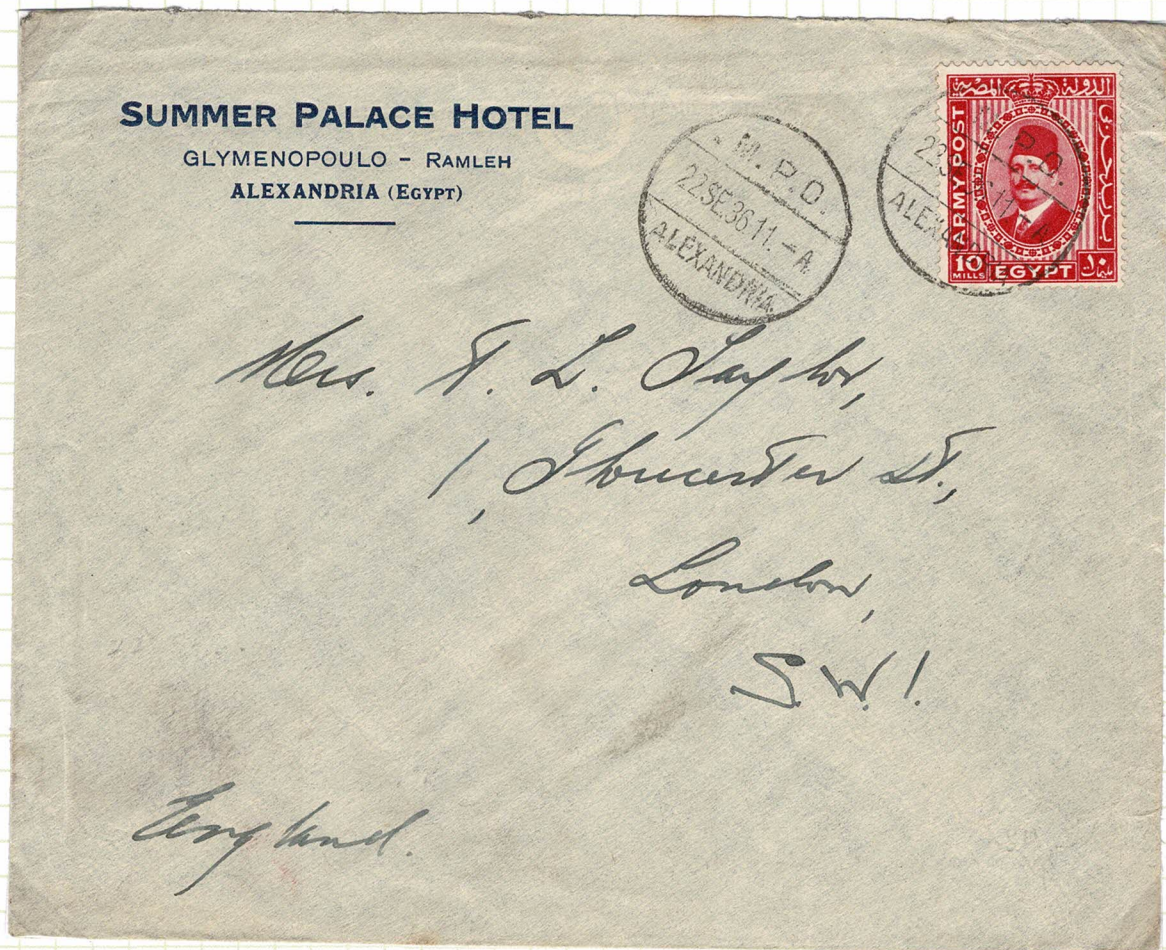 SUMMER PALACE HOTEL
GLYMENOPOULO - RAMLEH
ALEXANDRIA (EGYPT)
M.P.O.
22SE.36 11.-A.
ALEXANDRIA.
الدولة المصرية
ARMY POST
بريد الجيش
10 MILLS
EGYPT
١٠
Mrs. T. L. Taylor,
1, Gloucester St.,
London,
S.W.1.
England.